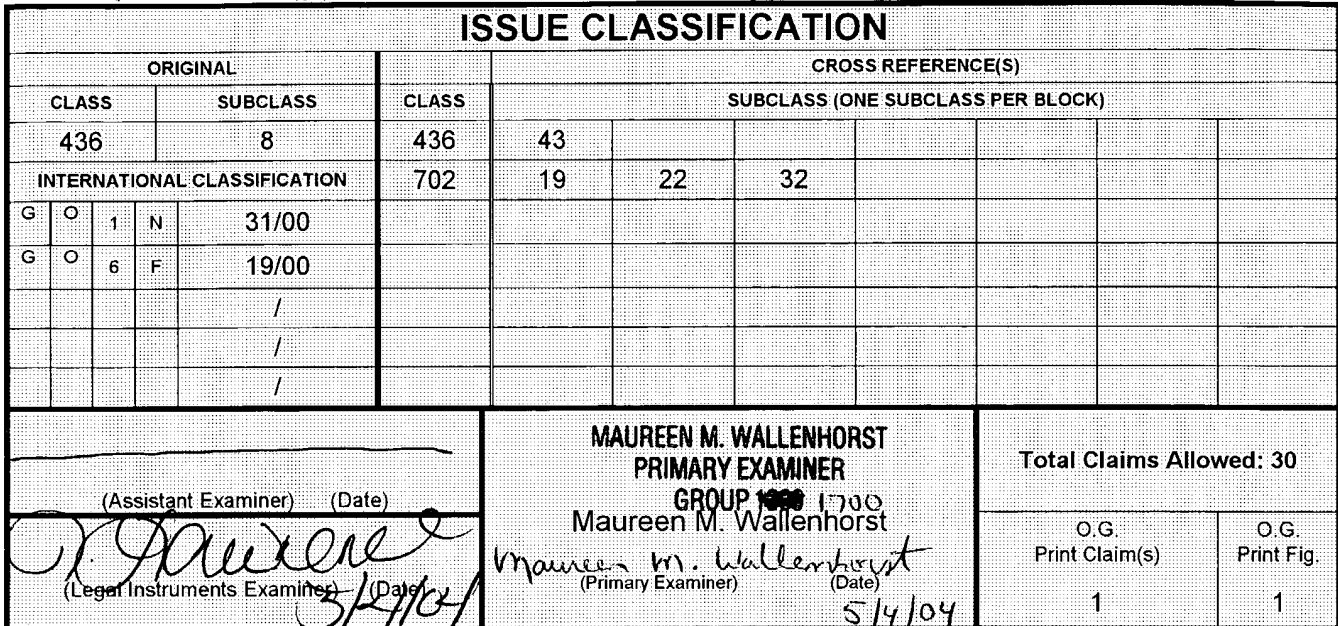 ISSUE CLASSIFICATION
ORIGINAL CROSS REFERENCE(S)
CLASS SUBCLASS CLASS SUBCLASS (ONE SUBCLASS PER BLOCK)
436 8 436 43
INTERNATIONAL CLASSIFICATION 702 19 22 32
G O 1 N 31/00
G O 6 F 19/00
/
/
/
(Assistant Examiner) (Date)
(Legal Instruments Examiner) (Date)
MAUREEN M. WALLENHORST
PRIMARY EXAMINER
GROUP 1700
Maureen M. Wallenhorst
Maureen M. Wallenhorst
(Primary Examiner) (Date)
5/4/04
Total Claims Allowed: 30
O.G.
Print Claim(s)
1
O.G.
Print Fig.
1